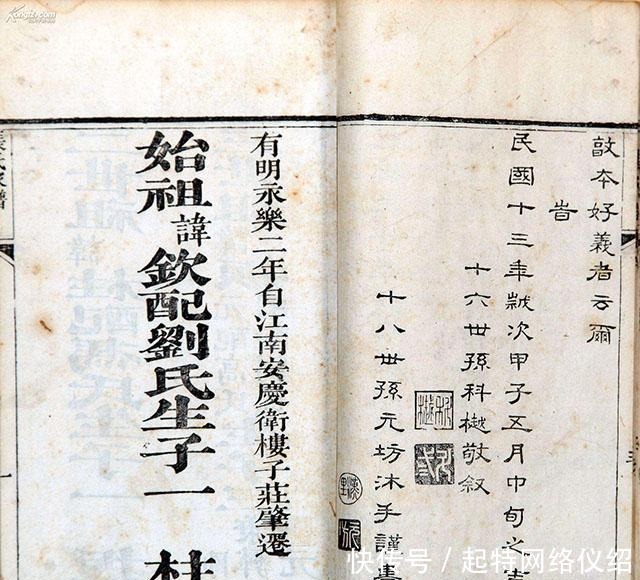 敦本好義者云爾
旹
民國十三年歲次甲子五月中旬之吉
十六世孫科樾敬叙
十八世孫元坊沐手謹書
有明永樂二年自江南安慶衛樓子莊肇遷
始祖諱欽配劉氏生子一
快传号/起特网络仪绍